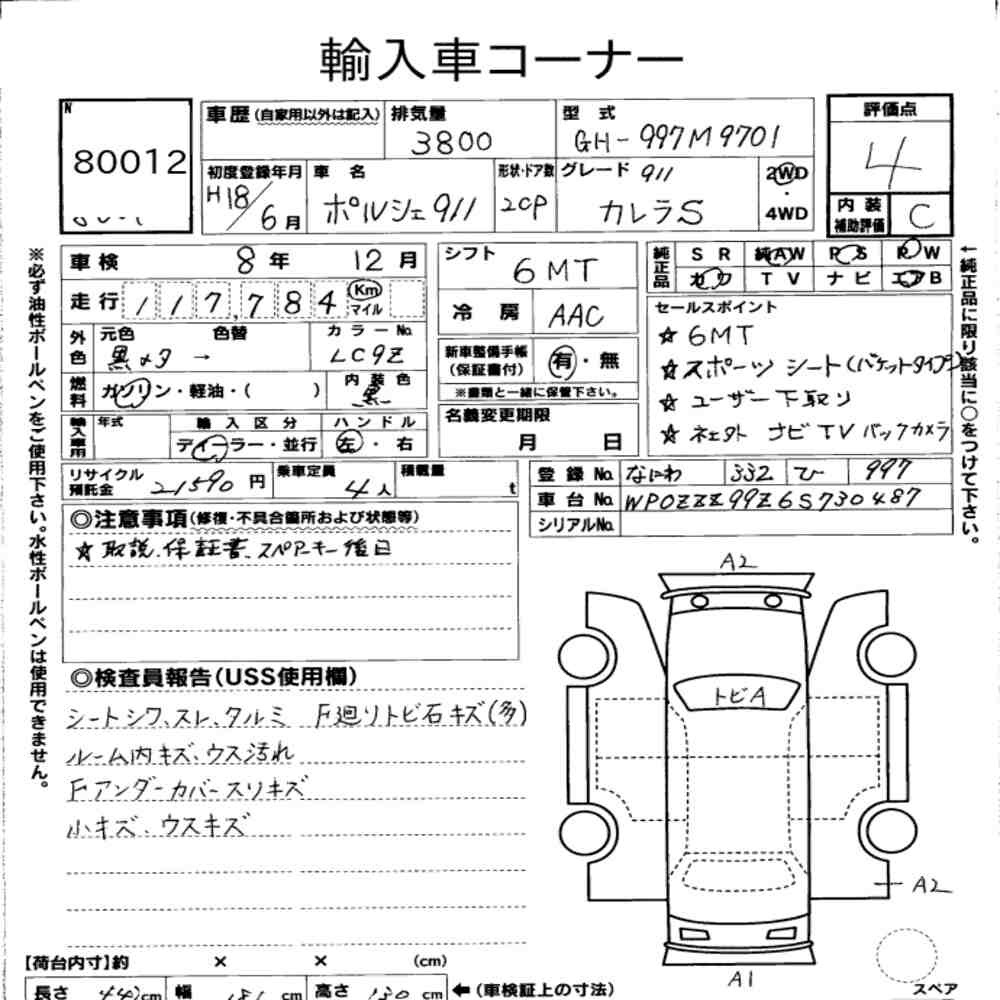 輸入車コーナー
N
80012
車歴(自家用以外は記入)
排気量
3800
型式
GH-997M9701
評価点
4
初度登録年月
H18/6月
車名
ポルシェ911
形状・ドア数
2CP
グレード
911
カレラS
2WD
・
4WD
内装
補助評価
C
車検 8年 12月
走行 117,784 Km
マイル
外色
元色
黒メタ
→
色替
カラーNo.
LC9Z
燃料
ガソリン・軽油・( )
内装色
黒
輸入車用
年式
輸入区分
ディーラー・並行
ハンドル
左・右
シフト
6MT
冷房
AAC
新車整備手帳
(保証書付)
有・無
※書類と一緒に保管下さい。
名義変更期限
月 日
純正品
SR 純AW PS PW
カワ TV ナビ エアB
セールスポイント
☆ 6MT
☆ スポーツシート(バケットタイプ)
☆ ユーザー下取り
☆ ナビTV バックカメラ
リサイクル
預託金
21590円
乗車定員
4人
積載量
t
登録No. なにわ 332 ひ 997
車台No. WP0ZZZ99Z6S730487
シリアルNo.
◎注意事項(修復・不具合箇所および状態等)
☆取説、保証書、スペアキー後日
◎検査員報告(USS使用欄)
シートシワ、スレ、タルミ F廻りトビ石キズ(多)
ルーム内キズ、ウス汚れ
Fアンダーカバースリキズ
小キズ、ウスキズ
A2
トビA
A2
A1
スペア
【荷台内寸】約 × × (cm)
長さ cm 幅 cm 高さ cm ←(車検証上の寸法)
※必ず油性ボールペンをご使用下さい。水性ボールペンは使用できません。
←純正品に限り該当に○をつけて下さい。